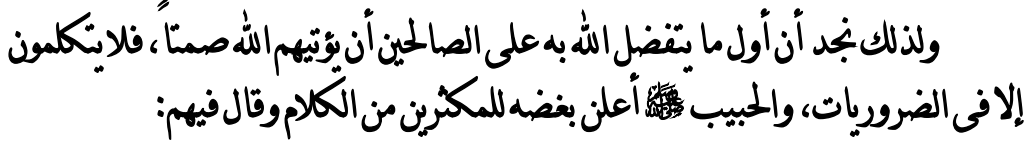 ولذلك نجد أن أول ما يتفضل الله به على الصالحين أن يؤتيهم الله صمتاً، فلا يتكلمون
إلا فى الضروريات، والحبيب ﷺ أعلن بغضه للمكثرين من الكلام وقال فيهم: